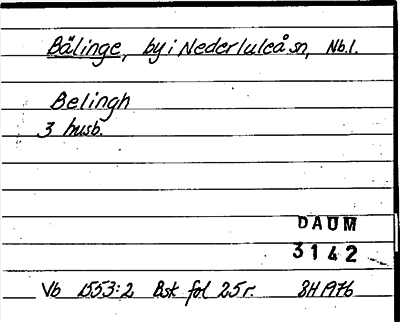 Bälinge, by i Nederluleå sn, Nb.l.
Belingh
3 husb.
DAUM
3142
Vb 1553:2 Bsk fol 25r. SH 1976